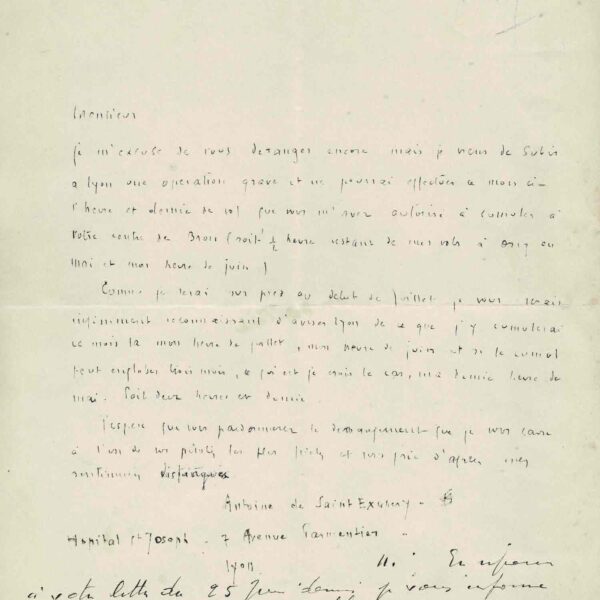 Monsieur
Je m'excuse de vous deranger encore mais je viens de subir
a Lyon une operation grave et ne pourrai effectuer ce mois ci
l'heure et demie de vol que vous m'avez autorisé à cumuler à
votre centre de Bron (soit 1/2 heure restant de mes vols à Orly en
mai et mon heure de juin)
Comme je serai sur pied au debut de Juillet je vous serais
infiniment reconnaissant d'aviser Lyon de ce que j'y cumulerai
ce mois là mon heure de juillet, mon heure de juin et si le cumul
peut englober trois mois, ce qui est je crois le cas, ma demie heure de
mai. Soit deux heures et demie.
J'espère que vous pardonnerez le derangement que je vous cause
à l'un de vos pilotes les plus et vous prie d'agreer mes
sentiments distingués
Antoine de Saint Exupery.
Hopital St Joseph. 7 Avenue Parmentier.
Lyon.
En réponse
à votre lettre du 25 Juin dernier je vous informe